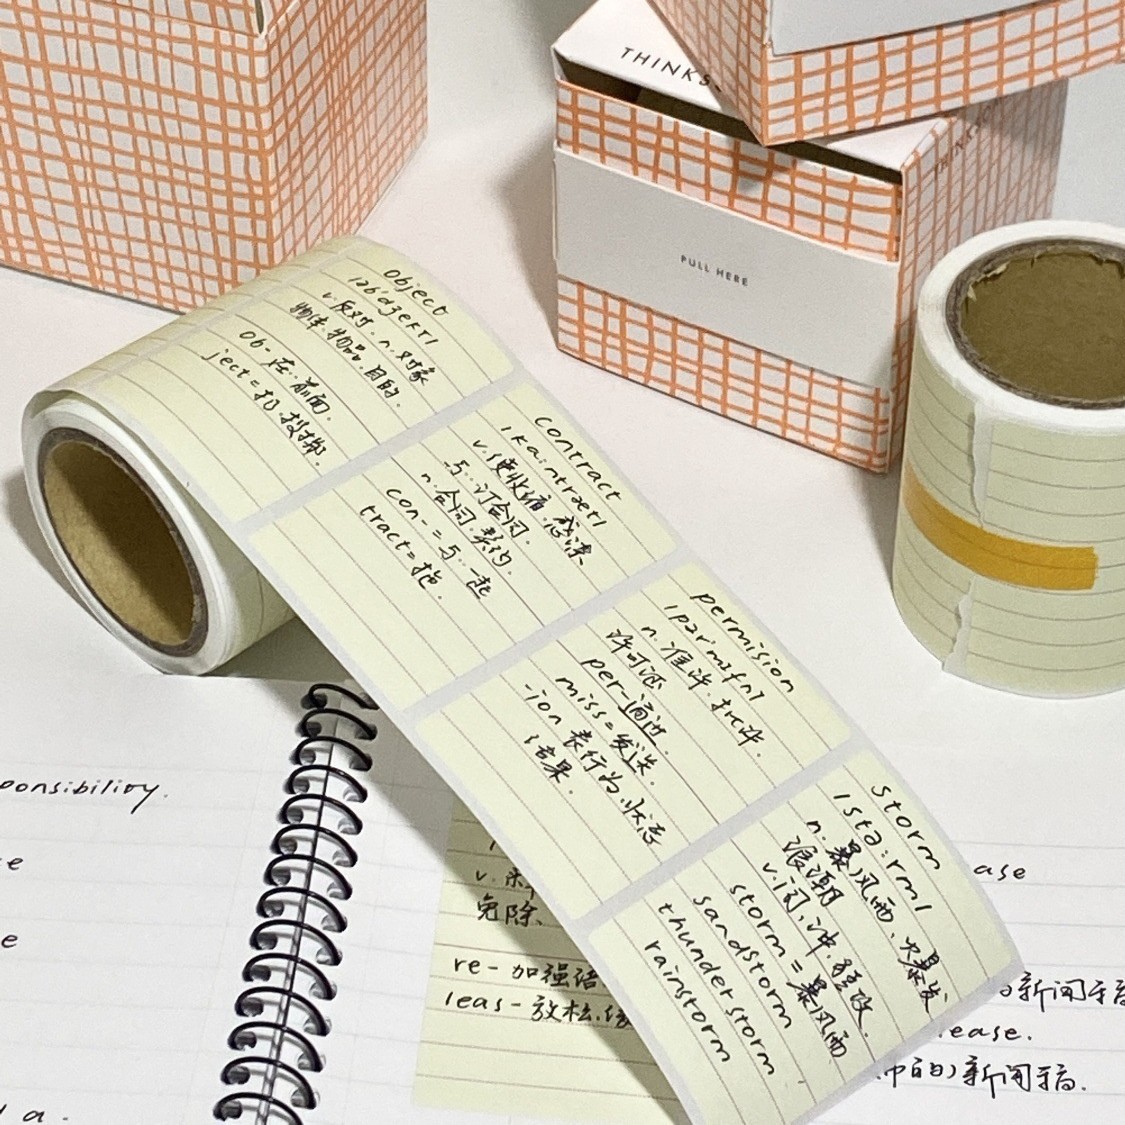 THINKS
THINKS
PULL HERE
object
v.反对. n.对象
物体.物品.目的.
ob-在.前面.
ject=扔.投掷.
contract
v.使收缩.感染
与..订合同.
n.合同.契约.
con-=与..一起
tract=拖.
permision
n.准许.批准.
许可证
per-通过.
miss=发送.
-ion 表行为.状态
storm
n.暴风雨,爆发
浪潮
v.闯.冲.猛攻.
storm=暴风雨
sandstorm
thunderstorm
rainstorm
ponsibility.
e
e
a.
v.
免除.
re-加强语
leas-放松.
ase
新闻稿
ease.
中的)新闻稿.